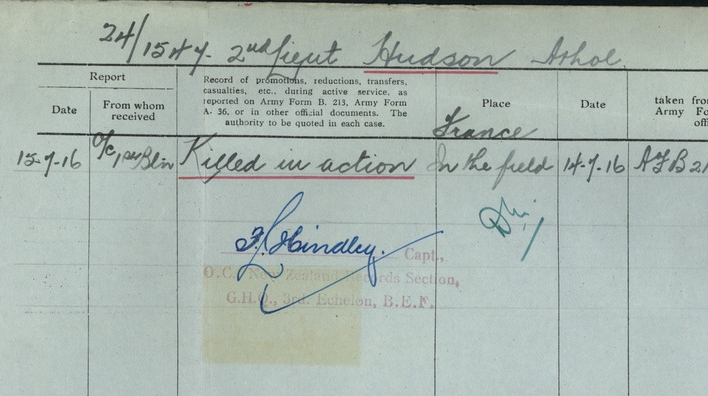 24/1547. 2nd Lieut Hudson Athol.
Report
Record of promotions, reductions, transfers,
casualties, etc., during active service, as
reported on Army Form B. 213, Army Form
A. 36, or in other official documents. The
authority to be quoted in each case.
Date
From whom
received
Place
Date
taken from
Army Fo
offi
France
15-7-16 O/C 1st Bln Killed in action In the field 14-7-16 AFB 21
F. Hindley.
Capt.,
O.C., New Zealand Records Section,
G.H.Q., 3rd. Echelon, B.E.F.